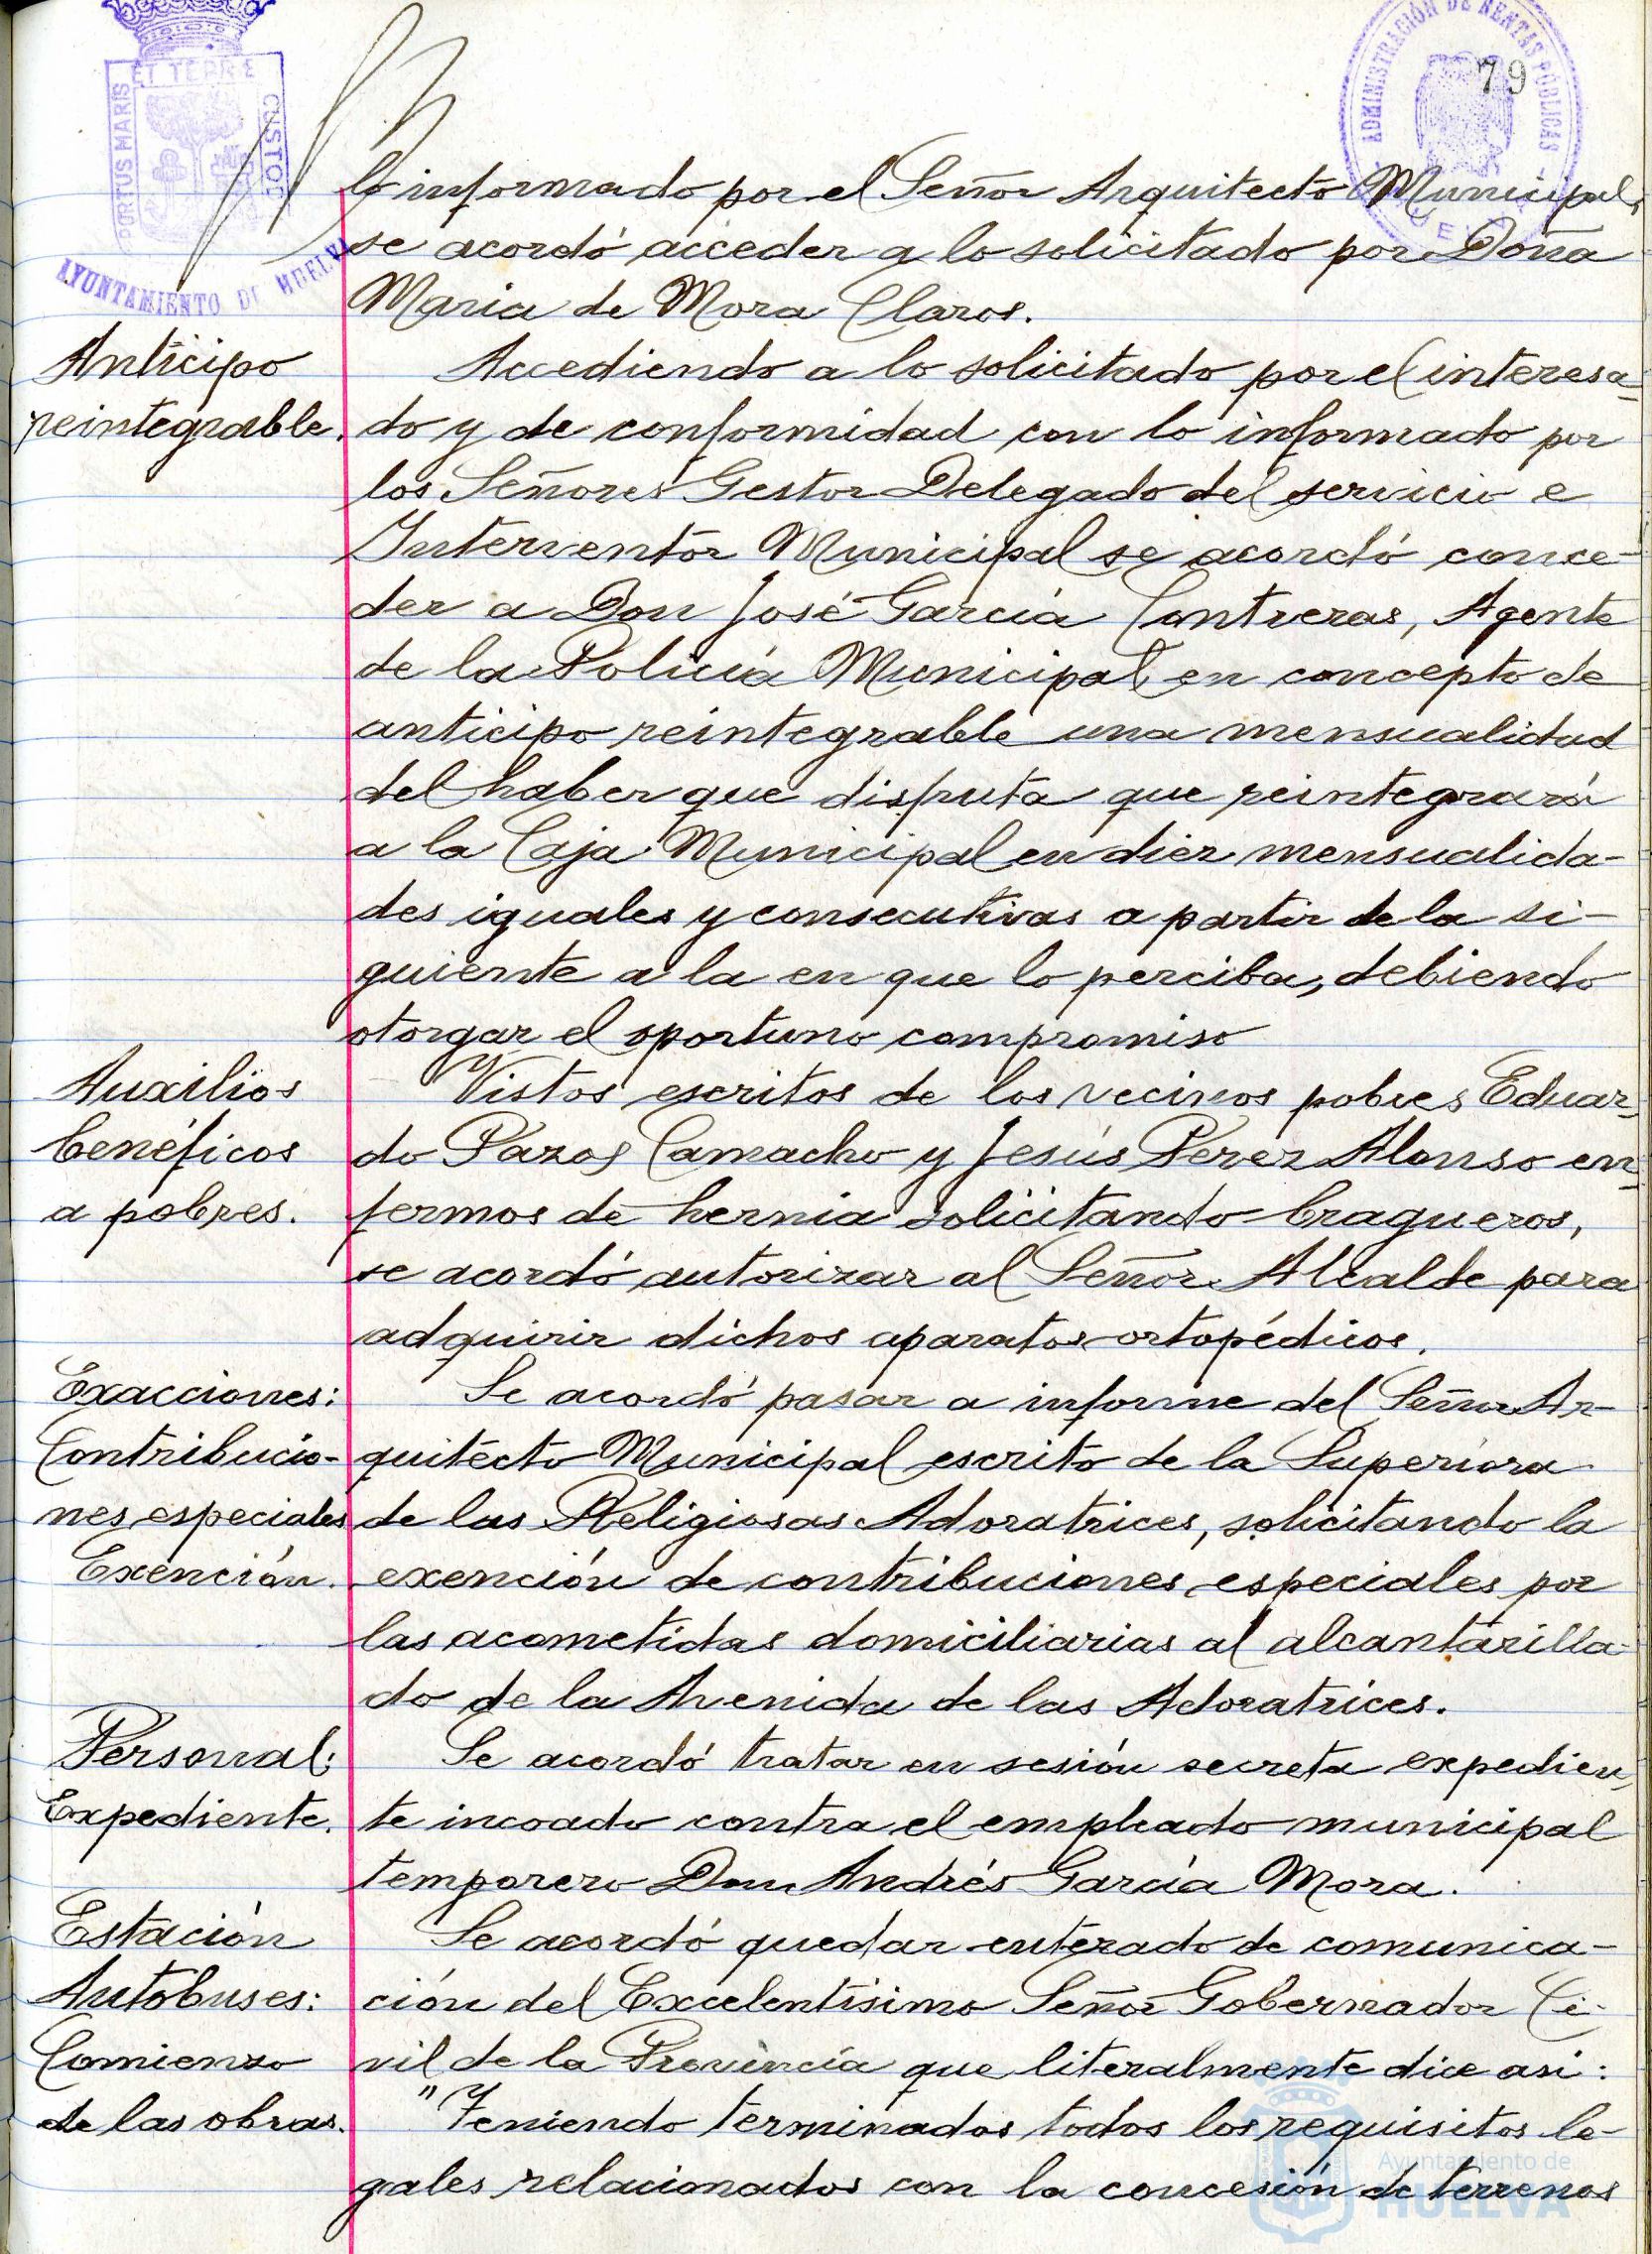 79
ET TERRE
PORTUS MARIS
CUSTODIA
AYUNTAMIENTO DE HUELVA
ADMINISTRACIÓN DE RENTAS PÚBLICAS
lo informado por el Señor Arquitecto Municipal,
se acordó acceder a lo solicitado por Doña
Maria de Mora Claros.
Anticipo
reintegrable.
Accediendo a lo solicitado por el interesa=
do y de conformidad con lo informado por
los Señores Gestor Delegado del servicio e
Interventor Municipal se acordó conce-
der a Don José García Contreras, Agente
de la Policía Municipal en concepto de
anticipo reintegrable una mensualidad
del haber que disfruta que reintegrará
a la Caja Municipal en diez mensualida-
des iguales y consecutivas a partir de la si-
guiente a la en que lo perciba, debiendo
otorgar el oportuno compromiso
Auxilios
benéficos
a pobres.
Vistos escritos de los vecinos pobres Eduar=
do Pazos Camacho y Jesús Perez Alonso en=
fermos de hernia solicitando bragueros,
se acordó autorizar al Señor Alcalde para
adquirir dichos aparatos ortopédicos.
Exacciones:
Contribucio-
nes especiales
Exención.
Se acordó pasar a informe del Señor Ar-
quitecto Municipal escrito de la Superiora
de las Religiosas Adoratrices, solicitando la
exención de contribuciones especiales por
las acometidas domiciliarias al alcantarilla-
do de la Avenida de las Adoratrices.
Personal:
Expediente.
Se acordó tratar en sesión secreta expedien-
te incoado contra el empleado municipal
temporero Don Andrés García Mora.
Estación
Autobuses:
Comienzo
de las obras.
Se acordó quedar enterado de comunica-
ción del Excelentísimo Señor Gobernador Ci-
vil de la Provincia que literalmente dice asi:
"Teniendo terminados todos los requisitos le-
gales relacionados con la concesión de terrenos
Ayuntamiento de
HUELVA